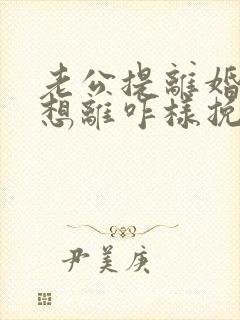 老公提離婚
想離咋樣挽
尹美庚